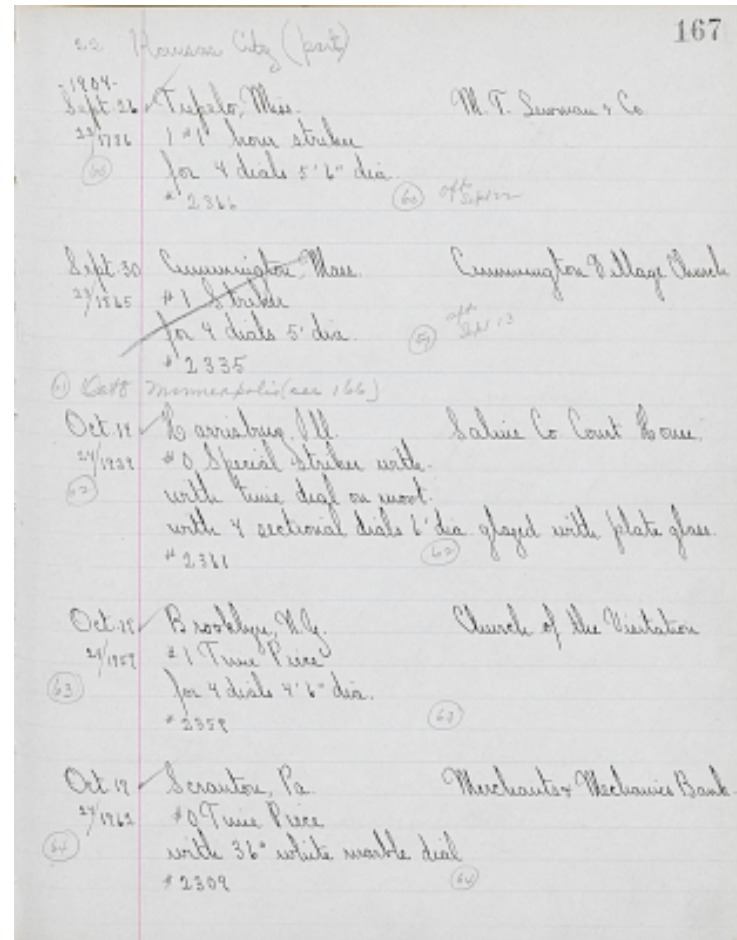 167
22 Kansas City (part)
1904-
Sept. 26 ✓ Tupelo, Miss. M. T. & Co.
23/1786 1 #1 hour striker
(60) for 4 dials 5' 6" dia.
# 2366 (60) Sept 22
Sept. 30 Cummington, Mass. Cummington Village Church
23/1565 # 1 Striker
for 4 dials 5' dia.
# 2335 (59) Sept 13
(61) Oct 8 Minneapolis (see 166)
Oct. 18 ✓ Harrisburg, Ill. Saline Co. Court House.
24/1929 # 0 Special Striker with
(62) with time dial on movt.
with 4 sectional dials 6' dia. glazed with plate glass.
# 2361 (62)
Oct. 18 ✓ Brooklyn, N.Y. Church of the Visitation
24/1959 # 1 Time Piece
(63) for 4 dials 4' 6" dia.
# 2358 (63)
Oct. 19 ✓ Scranton, Pa. Merchants & Mechanics Bank.
24/1962 # 0 Time Piece
(64) with 36" white marble dial
# 2309 (64)